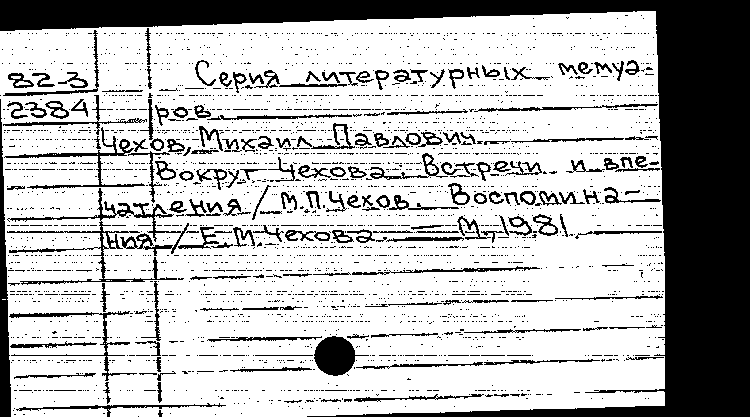 82-3 Серия литературных мемуа-
2384 ров.
Чехов, Михаил Павлович.
Вокруг Чехова. Встречи и впе-
чатления / М.П.Чехов. Воспомина-
ния / Е.М.Чехова. — М., 1981